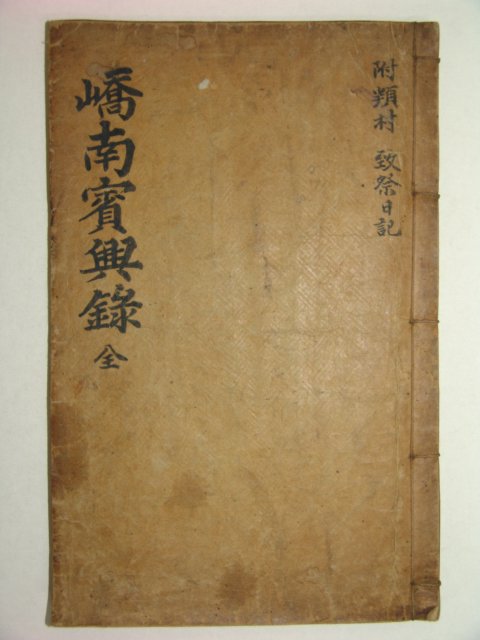 附頖村 致祭日記
嶠南賓興錄 全